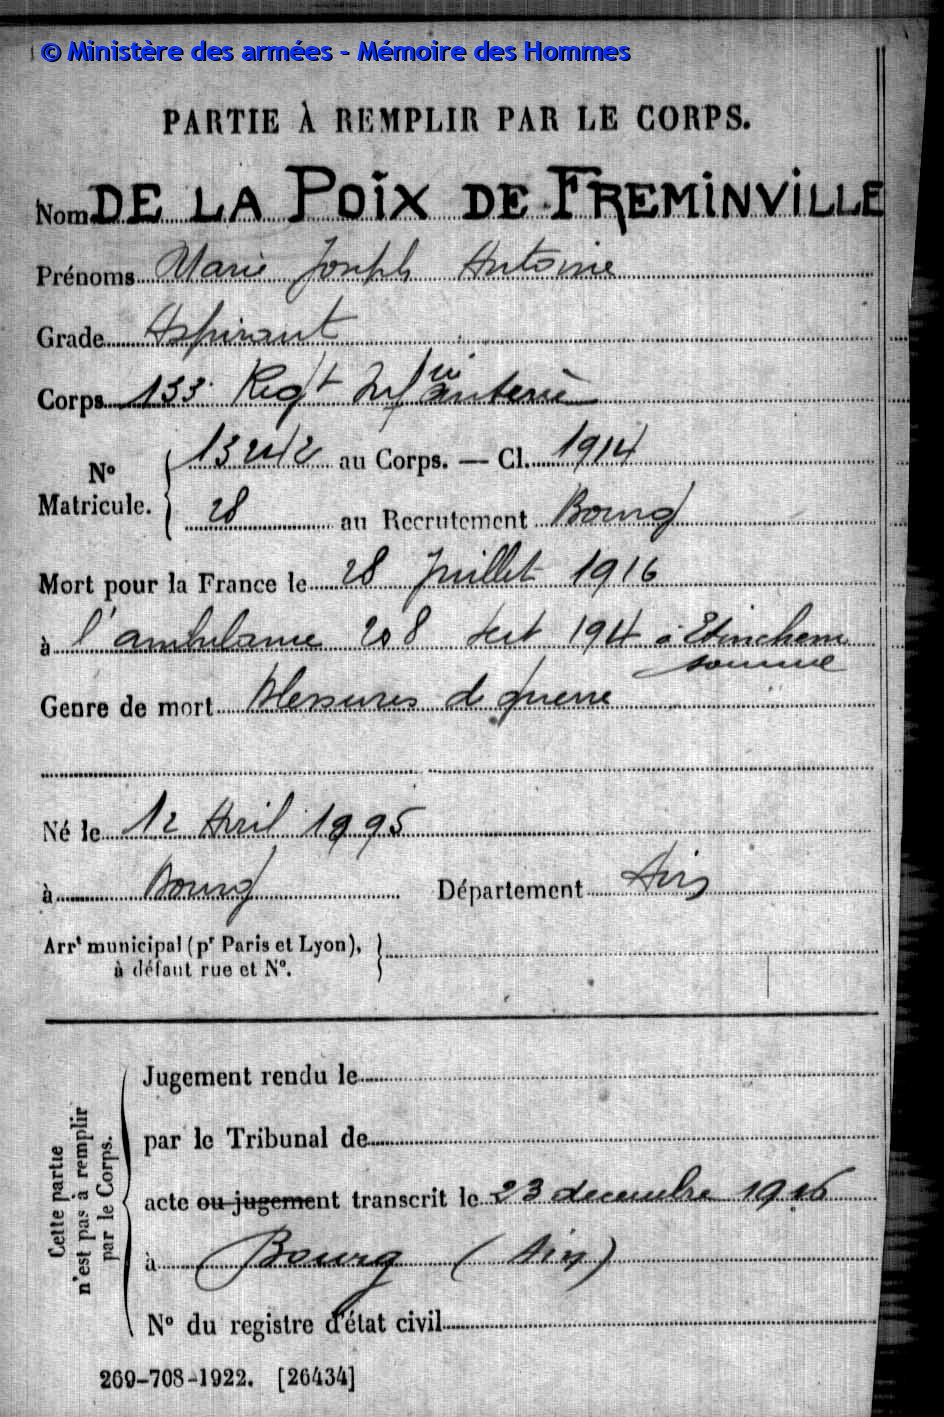 © Ministère des armées - Mémoire des Hommes
PARTIE À REMPLIR PAR LE CORPS.
Nom DE LA POÏX DE FREMINVILLE
Prénoms Marie Joseph Antoine
Grade Aspirant
Corps 133 Regt Infanterie
N° Matricule. 13242 au Corps. — Cl. 1914
28 au Recrutement Bourg
Mort pour la France le 28 Juillet 1916
à l'ambulance 208 sect 194 à Etinehem
somme
Genre de mort Blessures de guerre
Né le 12 Avril 1895
à Bourg Département Ain
Arrt municipal (pr Paris et Lyon),
à défaut rue et N°.
Cette partie n'est pas à remplir par le Corps.
Jugement rendu le
par le Tribunal de
acte ou jugement transcrit le 23 decembre 1916
à Bourg (Ain)
N° du registre d'état civil
269-708-1922. [26434]